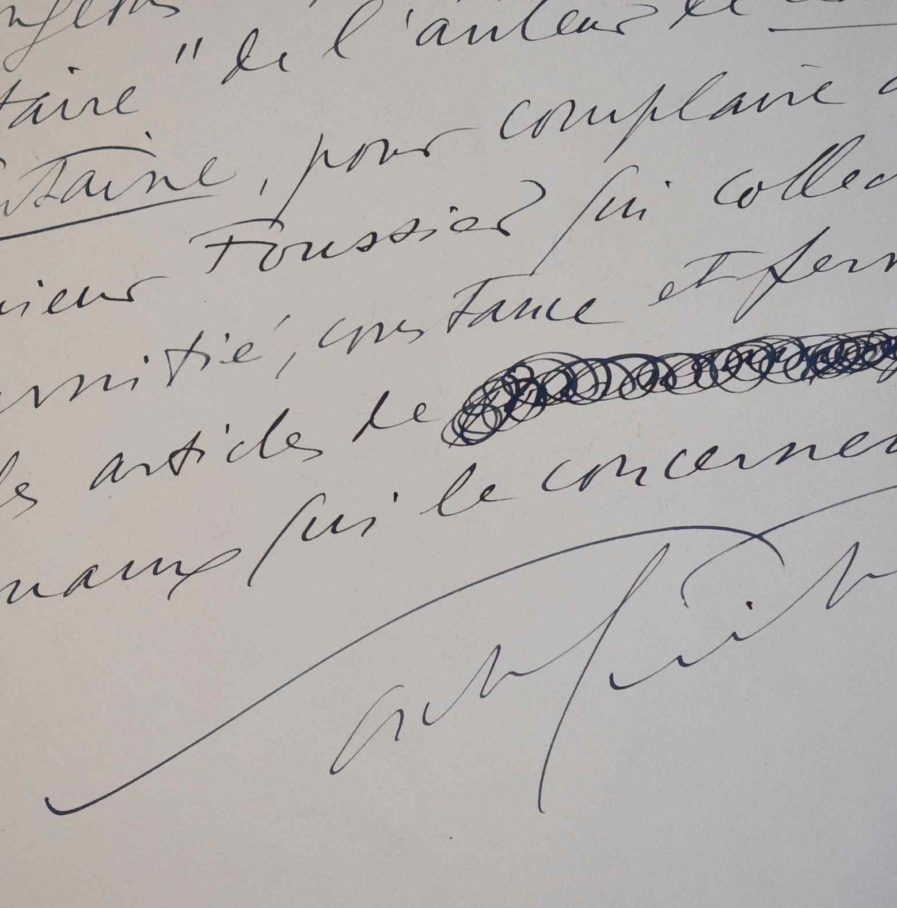 taire" de l'auteur de
ntaine, pour complaire
sieur Foussier qui collec
ernitié, constance et fer
les articles de
naux qui le concernen